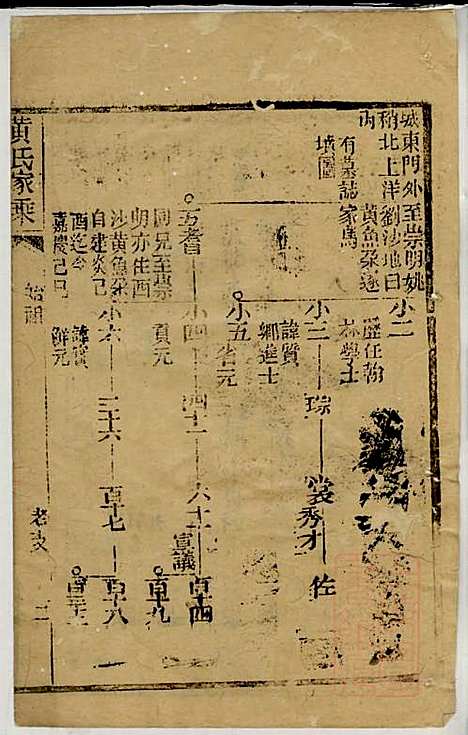 城東門外至崇明姚
稍北上洋劉沙地曰
內 黃魚垛遂
有墓誌家焉
墳圖
小二 歷任翰
林學士
小三 諱質
鄉進士
琮
裳秀才
佐
小五 省元
五耆
同兄至崇
明亦住西
沙黃魚垛
自建炎己
酉迄今
嘉慶己巳
小四
貢元
四十一
六十二
宣議
百十四
百十九
小六
諱贇
解元
三十六
百十七
百十八
黃氏家乘
始祖
老支
二